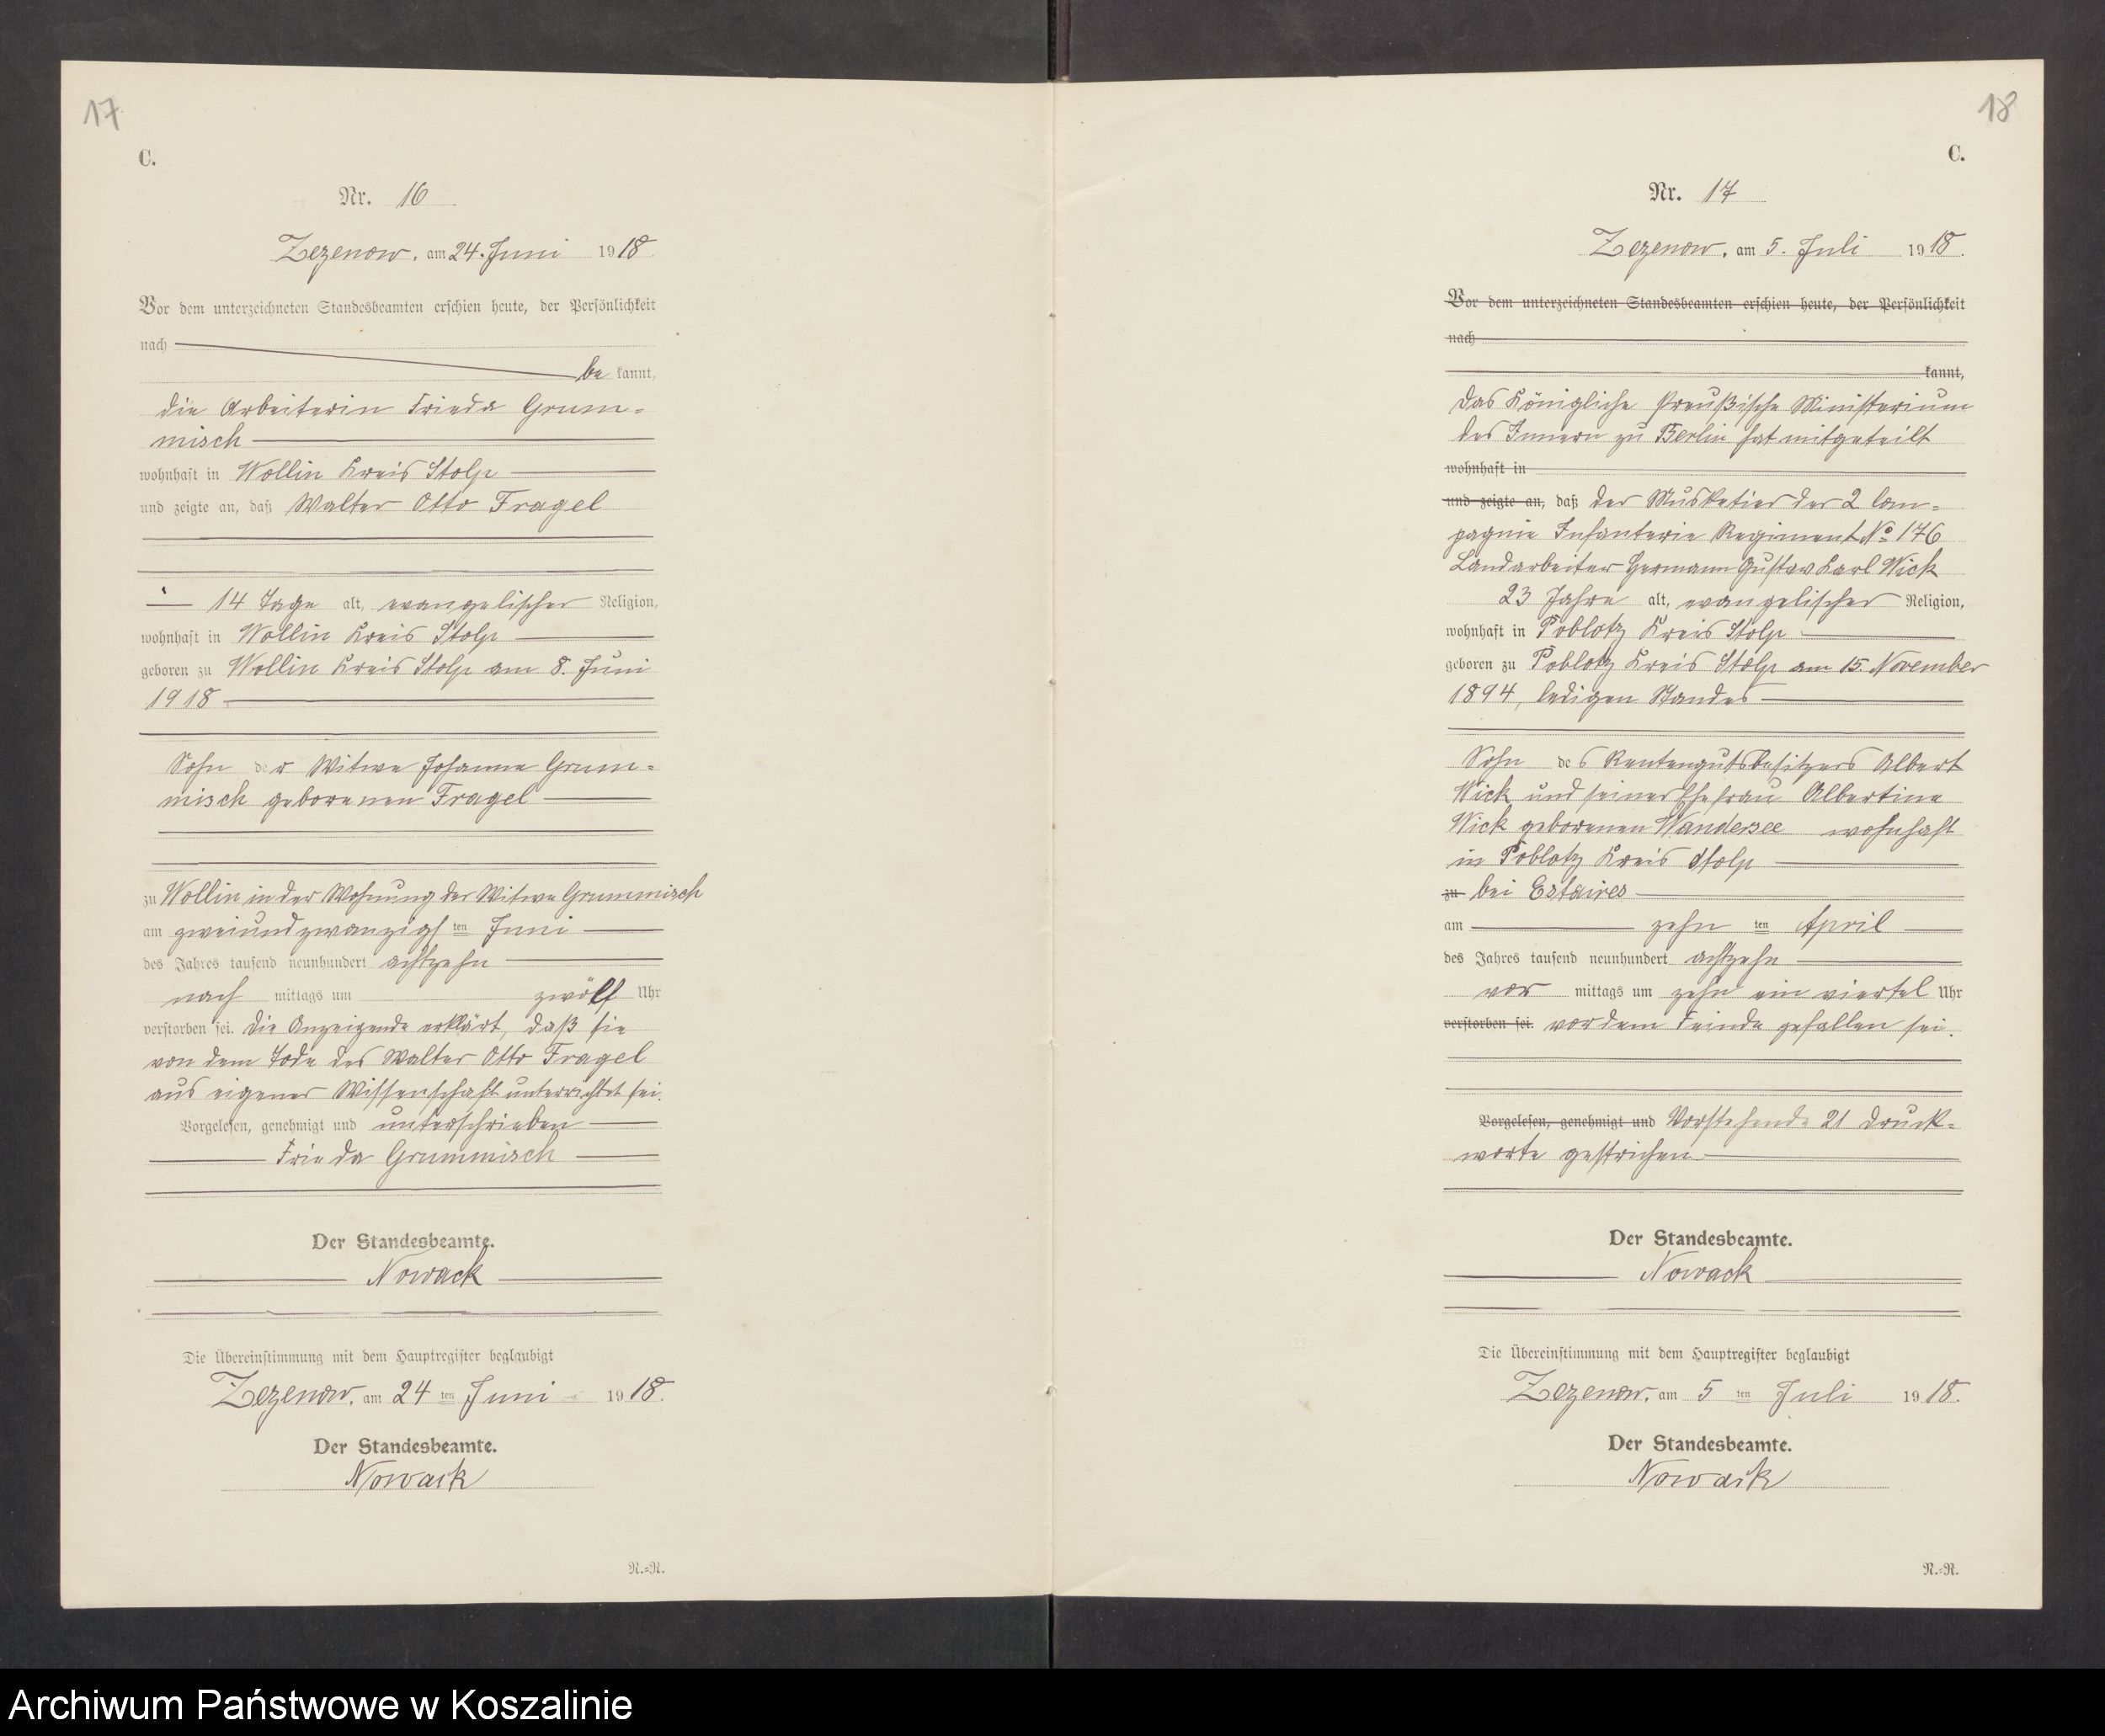 17
C.
Nr. 16
Zezenow, am 24. Juni 1918.
Vor dem unterzeichneten Standesbeamten erschien heute, der Persönlichkeit
nach
be kannt,
die Arbeiterin Frieda Grum=
misch
wohnhaft in Wollin Kreis Stolp
und zeigte an, daß Walter Otto Fragel
14 Tage alt, evangelischer Religion,
wohnhaft in Wollin Kreis Stolp
geboren zu Wollin Kreis Stolp am 8. Juni
1918
Sohn der Witwe Johanne Grum=
misch geborenen Fragel
zu Wollin in der Wohnung der Witwe Grummisch
am zweiundzwanzigsten Juni
des Jahres tausend neunhundert achtzehn
nach mittags um zwölf Uhr
verstorben sei. Die Anzeigende erklärt, daß sie
von dem Tode des Walter Otto Fragel
aus eigener Wissenschaft unterrichtet sei.
Vorgelesen, genehmigt und unterschrieben
Frieda Grummisch
Der Standesbeamte.
Nowack
Die Übereinstimmung mit dem Hauptregister beglaubigt
Zezenow, am 24 ten Juni 1918.
Der Standesbeamte.
Nowack
N.=R.
18
C.
Nr. 17
Zezenow, am 5. Juli 1918.
Vor dem unterzeichneten Standesbeamten erschien heute, der Persönlichkeit
nach
kannt,
Das Königliche Preußische Ministerium
des Innern zu Berlin hat mitgeteilt
wohnhaft in
und zeigte an, daß der Musketier der 2 Com=
pagnie Infanterie Regiment No 176
Landarbeiter Hermann Gustav Karl Wick
23 Jahre alt, evangelischer Religion,
wohnhaft in Poblotz Kreis Stolp
geboren zu Poblotz Kreis Stolp am 15. November
1894, ledigen Standes
Sohn des Rentengutsbesitzers Albert
Wick und seiner Ehefrau Albertine
Wick geborenen Wandersee wohnhaft
in Poblotz Kreis Stolp
zu bei Estaires
am zehn ten April
des Jahres tausend neunhundert achtzehn
vor mittags um zehn ein viertel Uhr
verstorben sei. vor dem Feinde gefallen sei.
Vorgelesen, genehmigt und Vorstehende 21 Druck=
worte gestrichen
Der Standesbeamte.
Nowack
Die Übereinstimmung mit dem Hauptregister beglaubigt
Zezenow, am 5 ten Juli 1918.
Der Standesbeamte.
Nowack
N.=R.
Archiwum Państwowe w Koszalinie